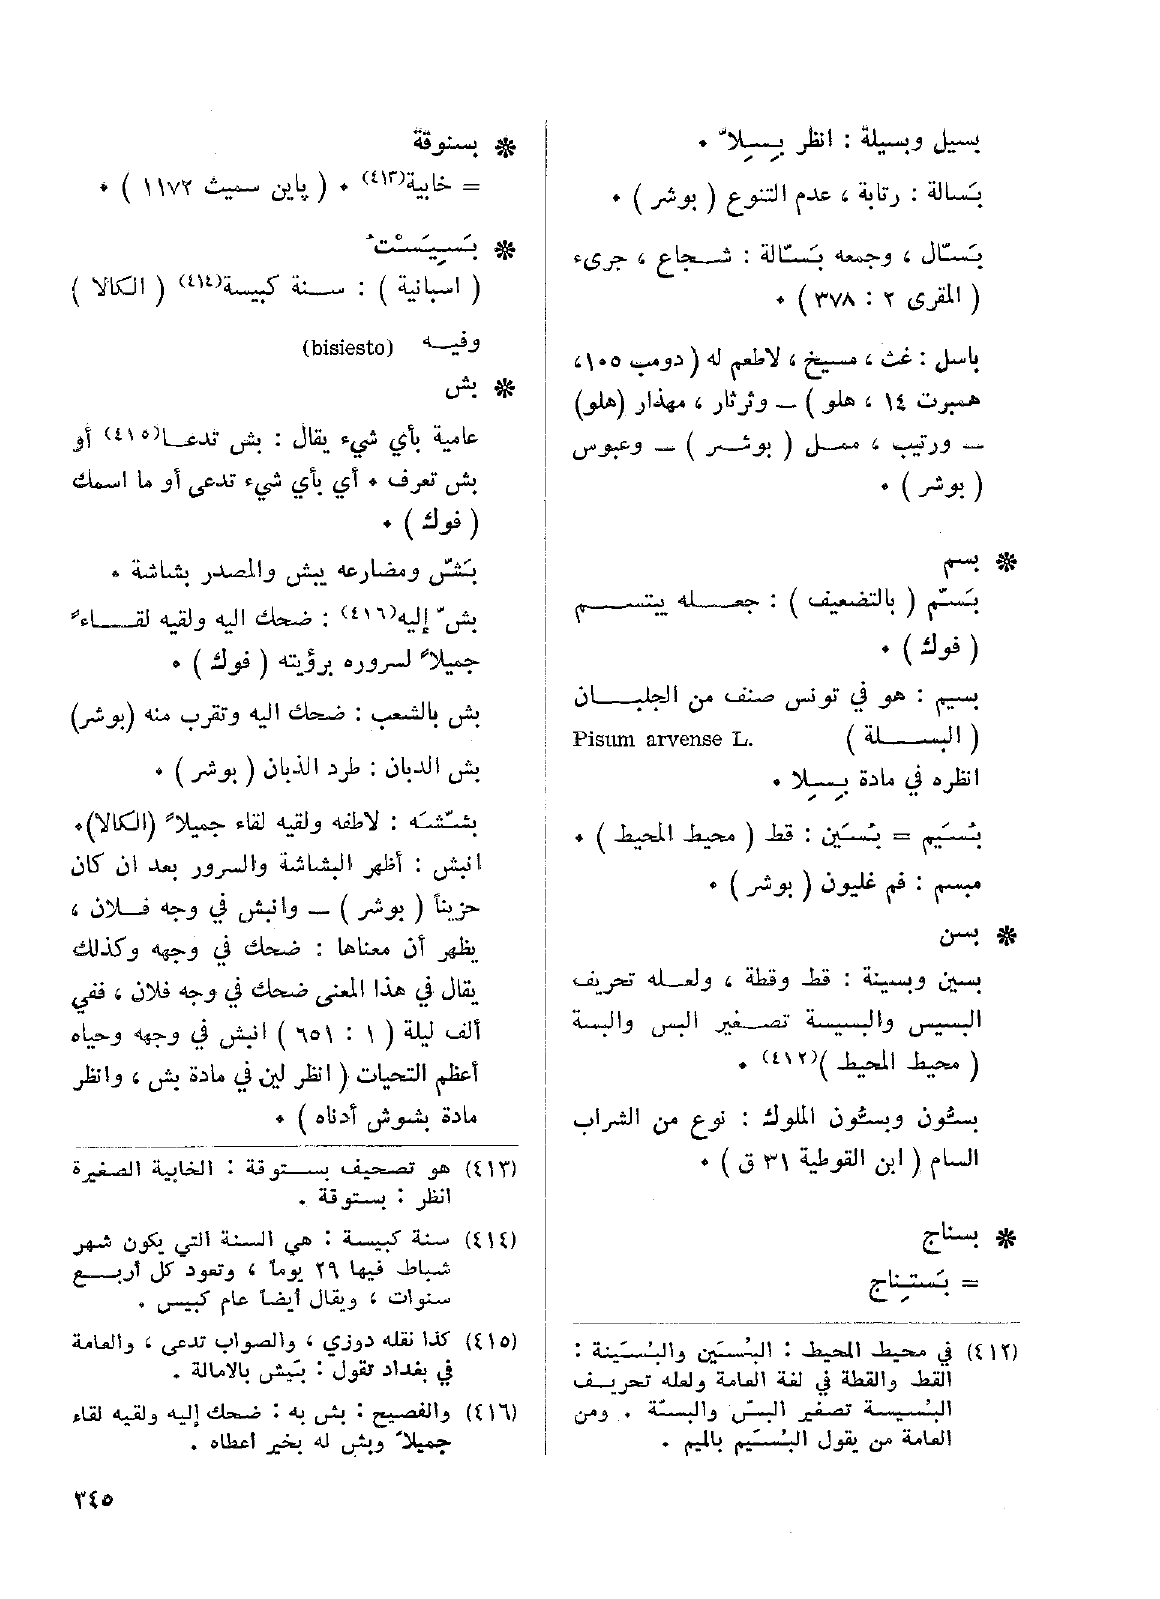 بسيل وبسيلة : انظر بِسِلاّ .
بَسالة : رتابة ، عدم التنوع ( بوشر ) .
بَسّال ، وجمعه بَسّالة : شـجاع ، جريء
( المقرى ٢ : ٣٧٨ ) .
باسل : غث ، مسيخ ، لاطعم له ( دومب ١٠٥،
همبرت ١٤ ، هلو ) ــ وثرثار ، مهذار (هلو)
ــ ورتيب ، ممـل ( بوشـر ) ــ وعبوس
( بوشر ) .
❋ بسم
بَسّم ( بالتضعيف ) : جعـله يبتسـم
( فوك ) .
بسيم : هو في تونس صنف من الجلبـان
( البسـلة ) Pisum arvense L.
انظره في مادة بِسِلا .
بُسَّيم = بُسَّين : قط ( محيط المحيط ) .
مبسم : فم غليون ( بوشر ) .
❋ بسن
بسين وبسينة : قط وقطة ، ولعـله تحريف
البسيس والبسيسة تصـغير البس والبسة
( محيط المحيط )(٤١٢) .
بسثون وبسثون الملوك : نوع من الشراب
السام ( ابن القوطية ٣١ ق ) .
❋ بسناج
= بَستِناج
(٤١٢) في محيط المحيط : البُسَّين والبُسَّينة :
القط والقطة في لغة العامة ولعله تحريـف
البُسيسة تصغير البسّ والبسّة . ومن
العامة من يقول البُسَّيم بالميم .
❋ بسنوقة
= خابية(٤١٣) . ( پاين سميث ١١٧٢ ) .
❋ بَسِيَسْتُ
( اسبانية ) : سـنة كبيسة(٤١٤) ( الكالا )
وفيـه (bisiesto)
❋ بش
عامية بأي شيء يقال : بش تدعـا(٤١٥) أو
بش تعرف . أي بأي شيء تدعى أو ما اسمك
( فوك ) .
بَشّ ومضارعه يبش والمصدر بشاشة .
بشّ إليه(٤١٦) : ضحك اليه ولقيه لقـاءً
جميلاً لسروره برؤيته ( فوك ) .
بش بالشعب : ضحك اليه وتقرب منه (بوشر)
بش الدبان : طرد الذبان ( بوشر ) .
بشّشَه : لاطفه ولقيه لقاء جميلاً (الكالا).
انبش : أظهر البشاشة والسرور بعد ان كان
حزيناً ( بوشر ) ــ وانبش في وجه فـلان ،
يظهر أن معناها : ضحك في وجهه وكذلك
يقال في هذا المعنى ضحك في وجه فلان ، ففي
ألف ليلة ( ١ : ٦٥١ ) انبش في وجهه وحياه
أعظم التحيات ( انظر لين في مادة بش ، وانظر
مادة بشوش أدناه ) .
(٤١٣) هو تصحيف بسـتوقة : الخابية الصغيرة
انظر : بستوقة .
(٤١٤) سنة كبيسة : هي السنة التي يكون شهر
شباط فيها ٢٩ يوماً ، وتعود كل أربـع
سنوات ، ويقال أيضاً عام كبيس .
(٤١٥) كذا نقله دوزي ، والصواب تدعى ، والعامة
في بغداد تقول : بَيش بالامالة .
(٤١٦) والفصيح : بش به : ضحك إليه ولقيه لقاء
جميلاً وبش له بخير أعطاه .
٣٤٥